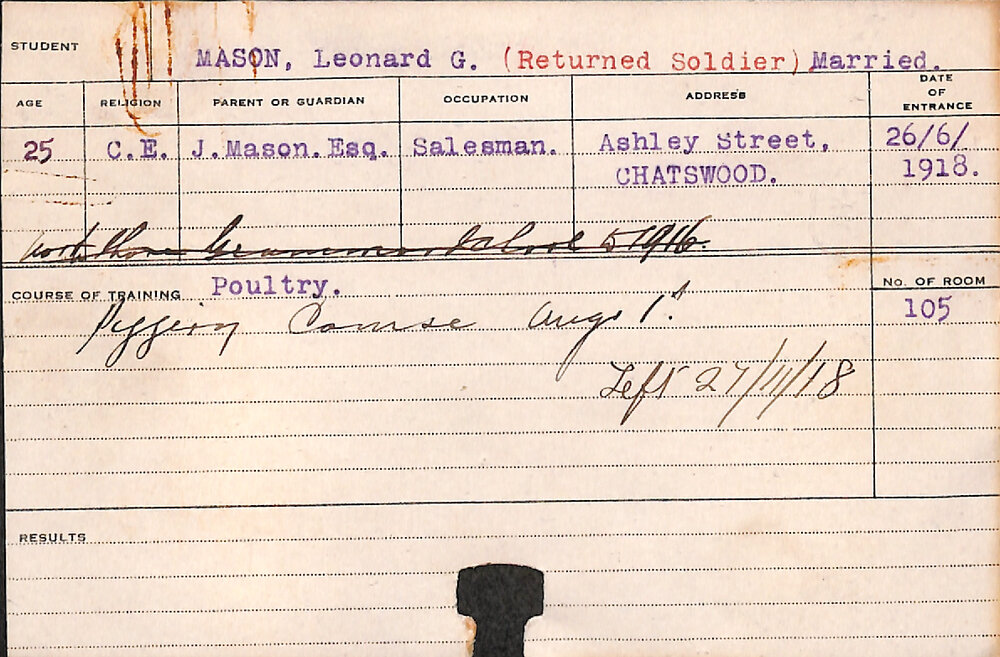 STUDENT MASON, Leonard G. (Returned Soldier) Married.
AGE RELIGION PARENT OR GUARDIAN OCCUPATION ADDRESS DATE OF ENTRANCE
25 C.E. J.Mason.Esq. Salesman. Ashley Street, 26/6/
CHATSWOOD. 1918.
North Shore Grammar School 5 1916.
COURSE OF TRAINING Poultry. No. OF ROOM
Piggery Course Aug 1st 105
Left 27/11/18
RESULTS